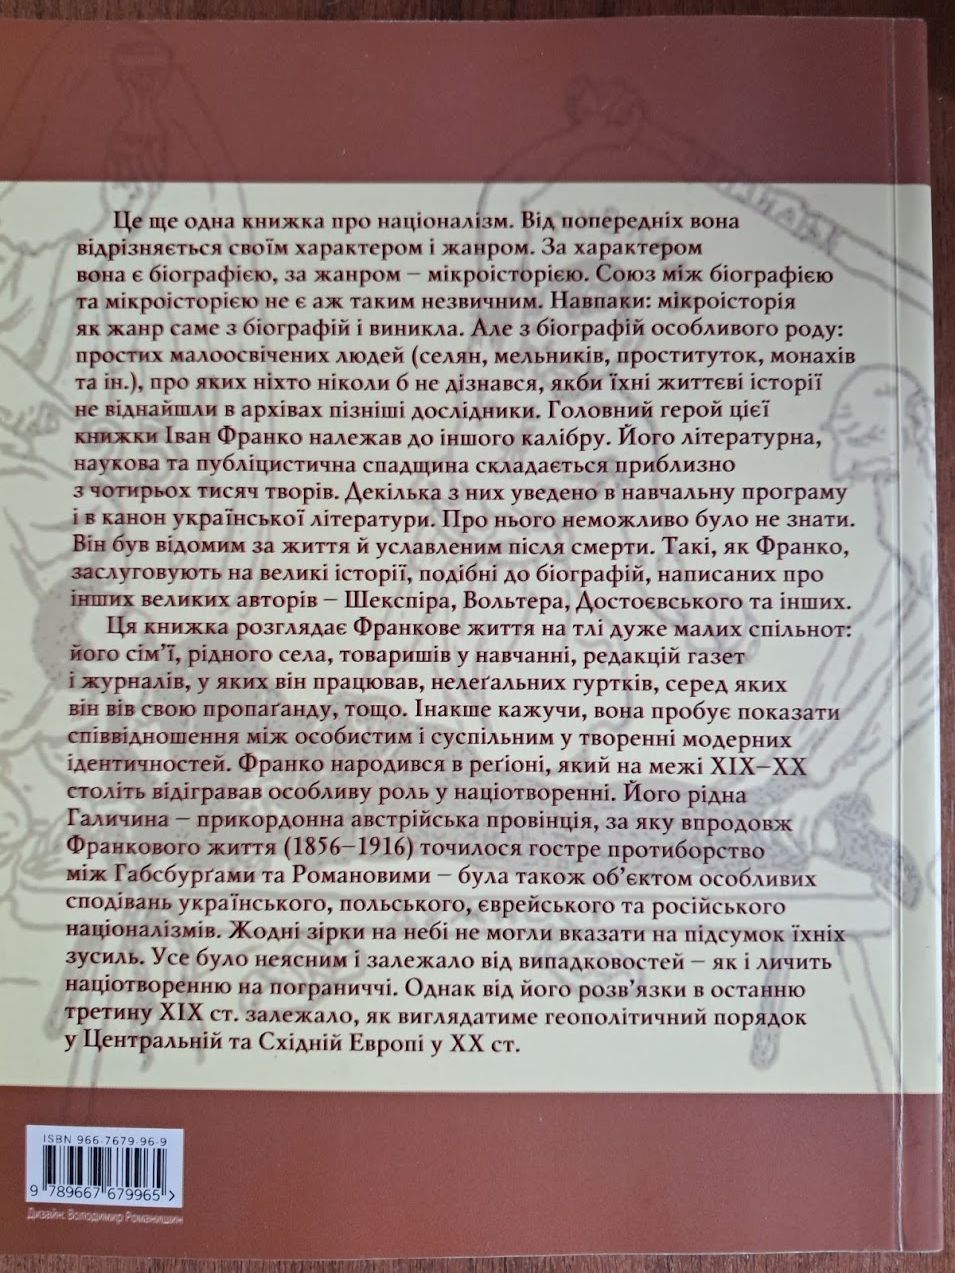 Це ще одна книжка про націоналізм. Від попередніх вона
відрізняється своїм характером і жанром. За характером
вона є біографією, за жанром – мікроісторією. Союз між біографією
та мікроісторією не є аж таким незвичним. Навпаки: мікроісторія
як жанр саме з біографій і виникла. Але з біографій особливого роду:
простих малоосвічених людей (селян, мельників, проституток, монахів
та ін.), про яких ніхто ніколи б не дізнався, якби їхні життєві історії
не віднайшли в архівах пізніші дослідники. Головний герой цієї
книжки Іван Франко належав до іншого калібру. Його літературна,
наукова та публіцистична спадщина складається приблизно
з чотирьох тисяч творів. Декілька з них уведено в навчальну програму
і в канон української літератури. Про нього неможливо було не знати.
Він був відомим за життя й уславленим після смерти. Такі, як Франко,
заслуговують на великі історії, подібні до біографій, написаних про
інших великих авторів – Шекспіра, Вольтера, Достоєвського та інших.
Ця книжка розглядає Франкове життя на тлі дуже малих спільнот:
його сім'ї, рідного села, товаришів у навчанні, редакцій газет
і журналів, у яких він працював, нелеґальних гуртків, серед яких
він вів свою пропаґанду, тощо. Інакше кажучи, вона пробує показати
співвідношення між особистим і суспільним у творенні модерних
ідентичностей. Франко народився в реґіоні, який на межі XIX–XX
століть відігравав особливу роль у націотворенні. Його рідна
Галичина – прикордонна австрійська провінція, за яку впродовж
Франкового життя (1856–1916) точилося гостре протиборство
між Габсбурґами та Романовими – була також об'єктом особливих
сподівань українського, польського, єврейського та російського
націоналізмів. Жодні зірки на небі не могли вказати на підсумок їхніх
зусиль. Усе було неясним і залежало від випадковостей – як і личить
націотворенню на пограниччі. Однак від його розв'язки в останню
третину XIX ст. залежало, як виглядатиме геополітичний порядок
у Центральній та Східній Европі у XX ст.
ISBN 966-7679-96-9
9 789667 679965 >
Дизайн: Володимир Романишин